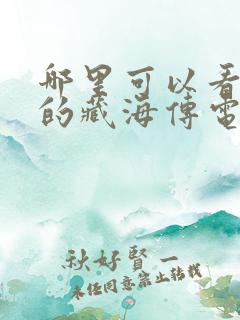 哪里可以看
的藏海传电
秋好贤一
未经同意禁止转载